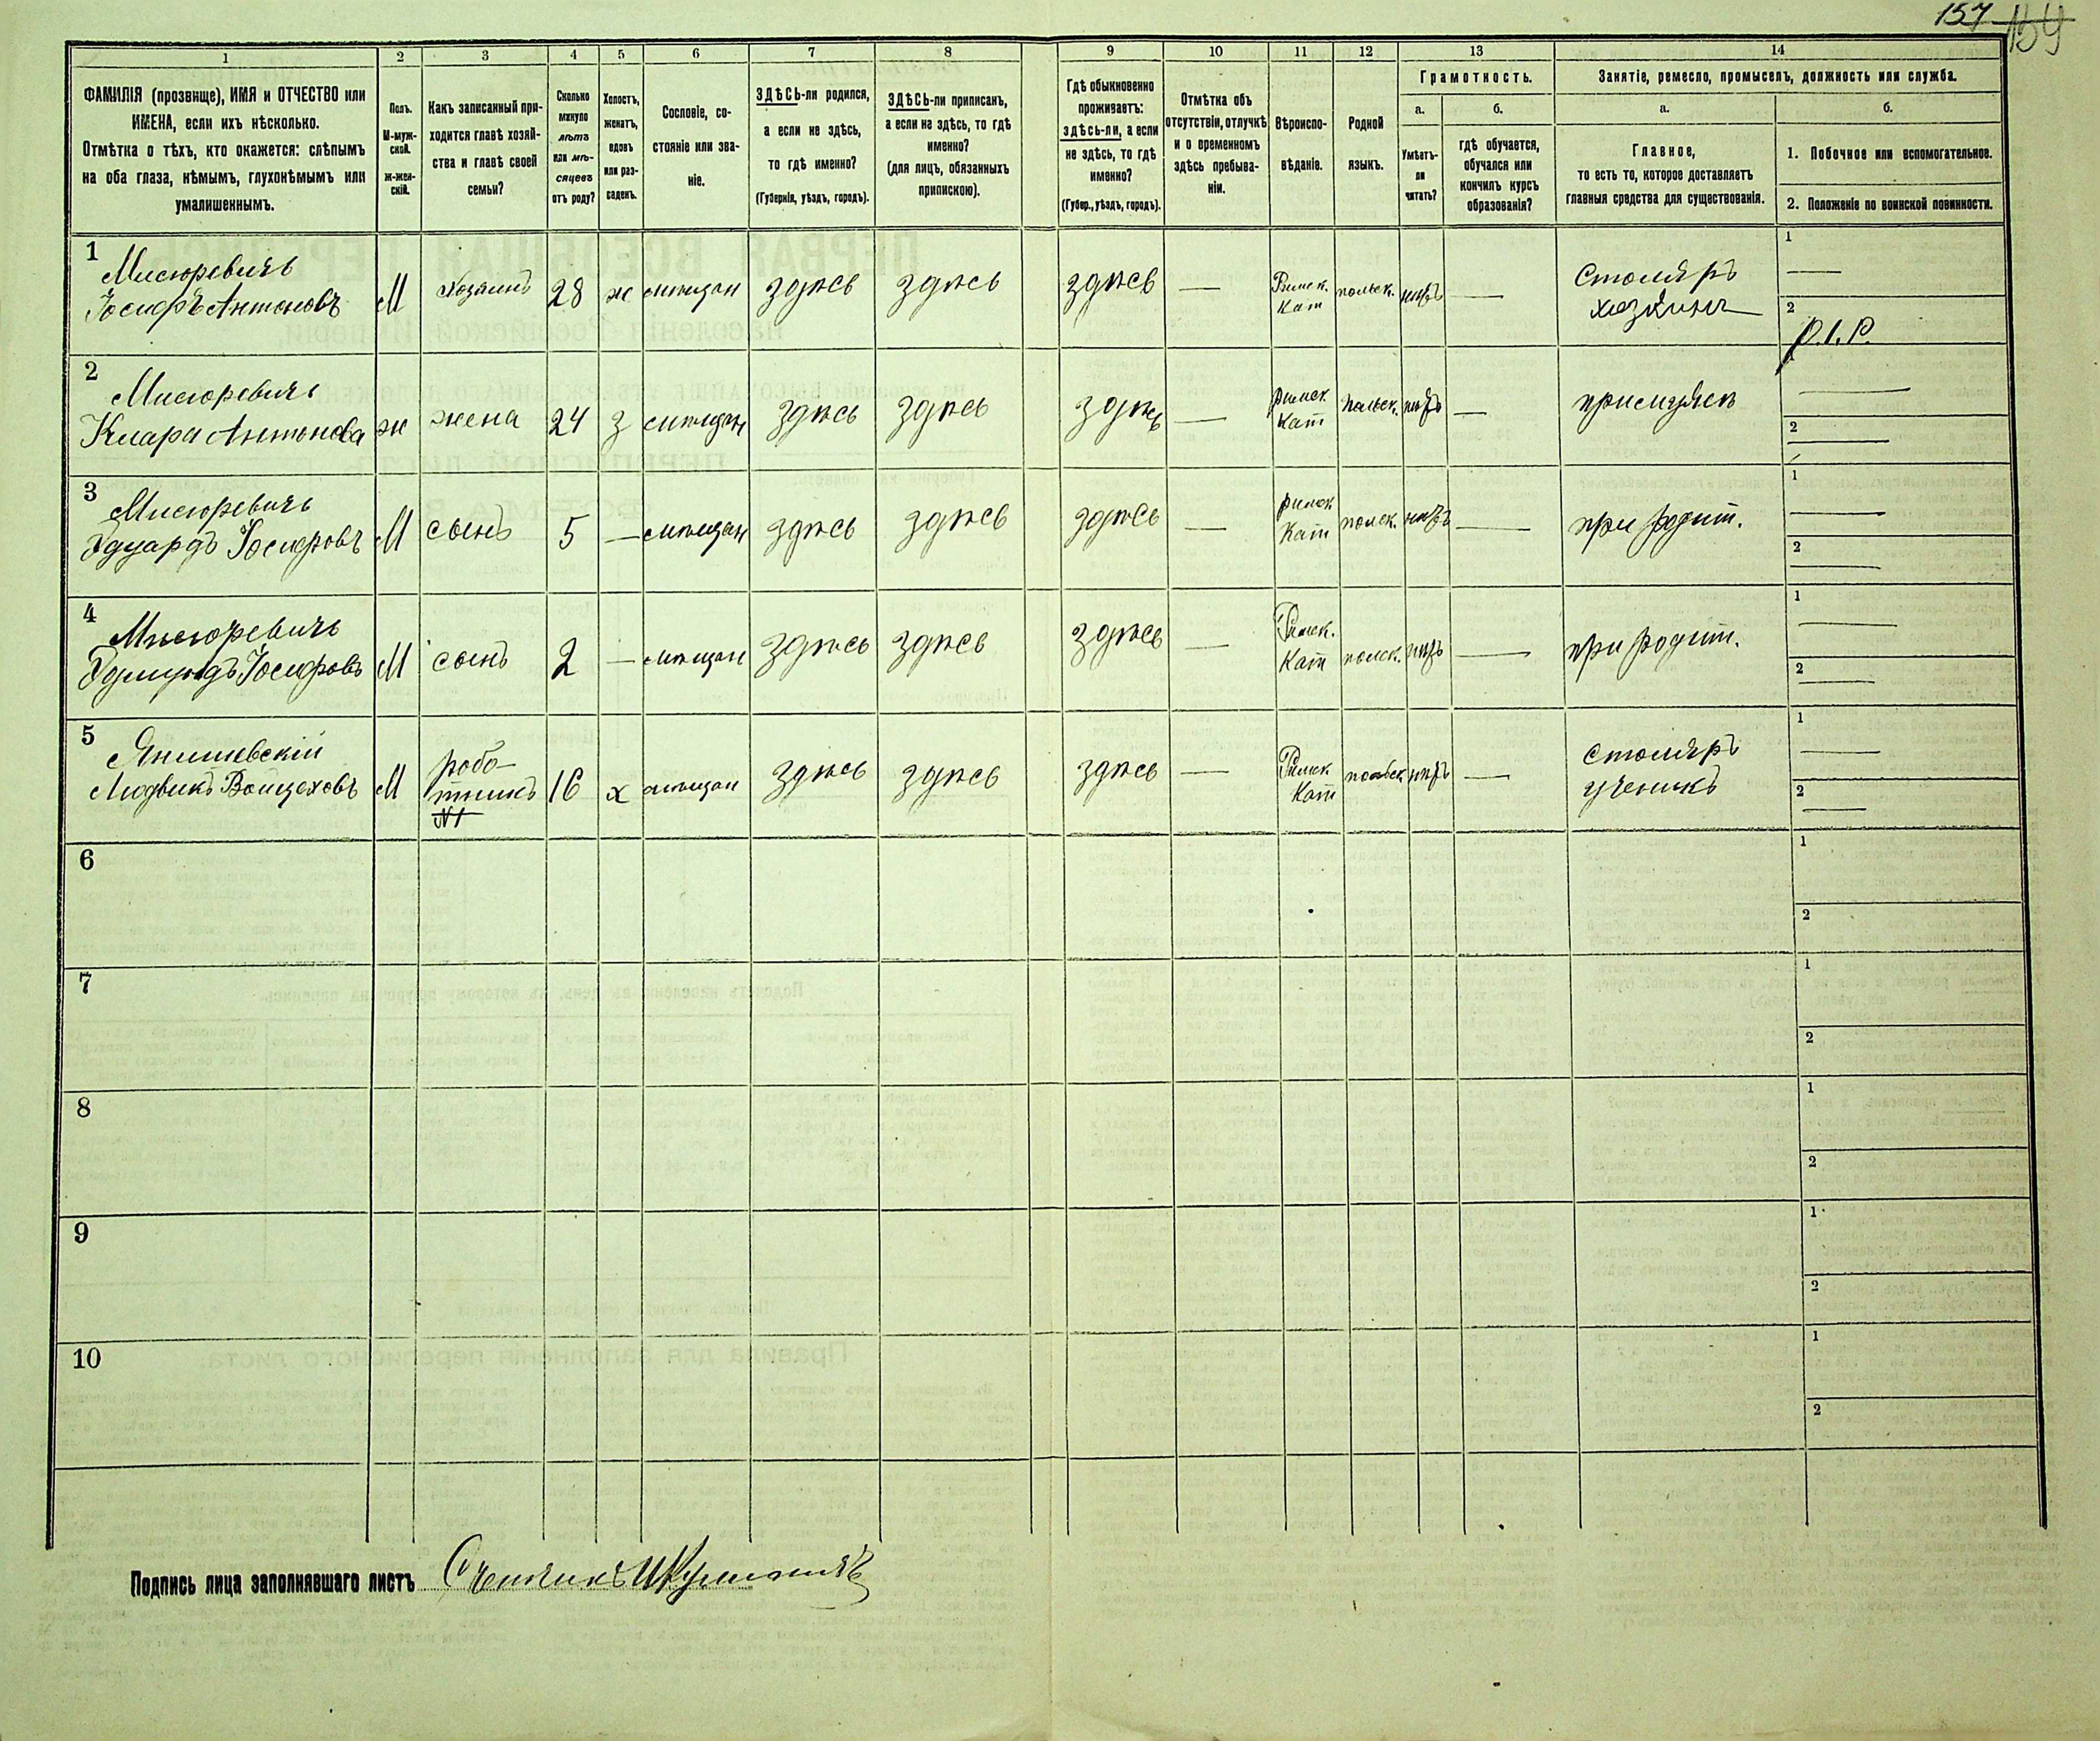 157 159
1 2 3 4 5 6 7 8 9 10 11 12 13 14
ФАМИЛІЯ (прозвище), ИМЯ и ОТЧЕСТВО или
ИМЕНА, если ихъ нѣсколько.
Отмѣтка о тѣхъ, кто окажется: слѣпымъ
на оба глаза, нѣмымъ, глухонѣмымъ или
умалишеннымъ.
Полъ.
М-муж-
ской.
Ж-жен-
скій.
Какъ записанный при-
ходится главѣ хозяй-
ства и главѣ своей
семьи?
Сколько
минуло
лѣтъ
или мѣ-
сяцевъ
отъ роду?
Холостъ,
женатъ,
вдовъ
или раз-
веденъ.
Сословіе, со-
стояніе или зва-
ніе.
ЗДѢСЬ-ли родился,
а если не здѣсь,
то гдѣ именно?
(Губернія, уѣздъ, городъ).
ЗДѢСЬ-ли приписанъ,
а если не здѣсь, то гдѣ
именно?
(для лицъ, обязанныхъ
припискою).
Гдѣ обыкновенно
проживаетъ:
здѣсь-ли, а если
не здѣсь, то гдѣ
именно?
(Губер., уѣздъ, городъ).
Отмѣтка объ
отсутствіи, отлучкѣ
и о временномъ
здѣсь пребыва-
ніи.
Вѣроиспо-
вѣданіе.
Родной
языкъ.
Грамотность.
а. б.
Умѣетъ-
ли
читать?
гдѣ обучается,
обучался или
кончилъ курсъ
образованія?
Занятіе, ремесло, промыселъ, должность или служба.
а. б.
Главное,
то есть то, которое доставляетъ
главныя средства для существованія.
1. Побочное или вспомогательное.
2. Положеніе по воинской повинности.
1
Мисюревичъ
Іосифъ Антоновъ М хозяинъ 28 ж мѣщан здѣсь здѣсь здѣсь — Римск. Кат польск. нѣтъ — Столяръ хозяинъ
1 —
2 Р.I.Р.
2
Мисюревичъ
Клара Антонова ж жена 24 з мѣщан здѣсь здѣсь здѣсь — римск Кат польск. нѣтъ — при мужѣ
1 —
2 —
3
Мисюревичъ
Эдуардъ Іосифовъ М сынъ 5 — мѣщан здѣсь здѣсь здѣсь — римск Кат польск. нѣтъ — при родит.
1 —
2 —
4
Мисюревичъ
Эдмундъ Іосифовъ М сынъ 2 — мѣщан здѣсь здѣсь здѣсь — Римск. Кат польск. нѣтъ — при родит.
1 —
2 —
5
Янишевскій
Людвикъ Войцеховъ М робо-
тникъ
№1 16 х мѣщан здѣсь здѣсь здѣсь — Римск Кат польск нѣтъ — Столяръ ученикъ
1 —
2 —
6
1
2
7
1
2
8
1
2
9
1
2
10
1
2
Подпись лица заполнявшаго листъ Счетчикъ